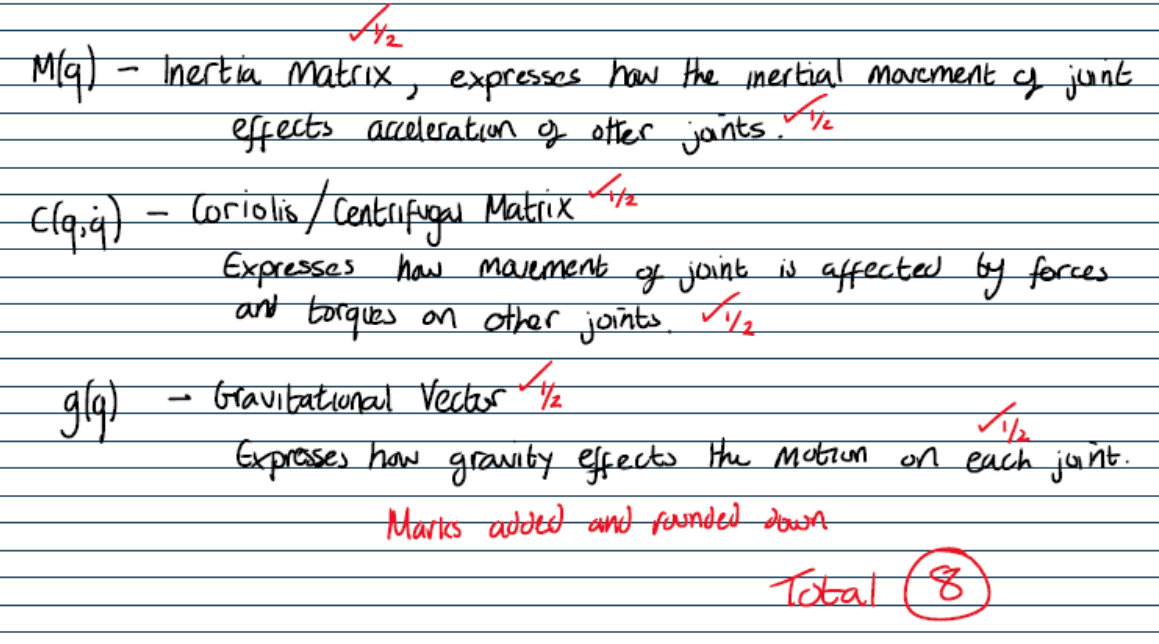 ✓1/2
M(q) - Inertia Matrix, expresses how the inertial movement of joint
effects acceleration of other joints. ✓1/2
C(q,q̇) - Coriolis/Centrifugal Matrix ✓1/2
Expresses how movement of joint is affected by forces
and torques on other joints. ✓1/2
g(q) - Gravitational Vector ✓1/2
✓1/2
Expresses how gravity effects the motion on each joint.
Marks added and rounded down
Total 8